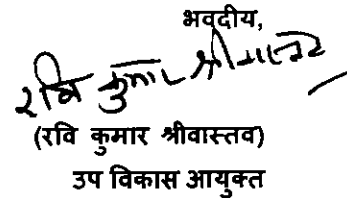 भवदीय,
रवि कुमार श्रीवास्तव
(रवि कुमार श्रीवास्तव)
उप विकास आयुक्त